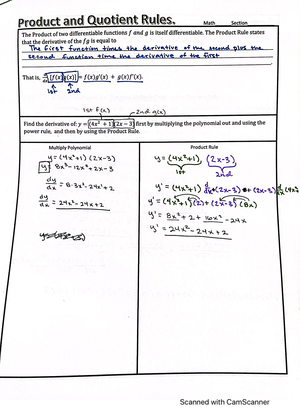 Product and Quotient Rules.
Math Section
The Product of two differentiable functions f and g is itself differentiable. The Product Rule states
that the derivative of the fg is equal to
The first function times the derivative of the second plus the
second function time the derivative of the first
That is, d/dx [f(x)g(x)] = f(x)g'(x) + g(x)f'(x).
1st 2nd
1st f(x) 2nd g(x)
Find the derivative of: y = (4x² + 1)(2x − 3) first by multiplying the polynomial out and using the
power rule, and then by using the Product Rule.
Multiply Polynomial
y = (4x²+1) (2x-3)
y = 8x³-12x²+2x-3
dy/dx = 8·3x²-24x+2
dy/dx = 24x²-24x+2
Product Rule
y = (4x²+1) (2x-3)
1st 2nd
y' = (4x²+1) d/dx (2x-3) + (2x-3) d/dx (4x²
y' = (4x²+1)(2) + (2x-3)(8x)
y' = 8x² + 2 + 16x² -24x
y' = 24x² -24x+2
Scanned with CamScanner